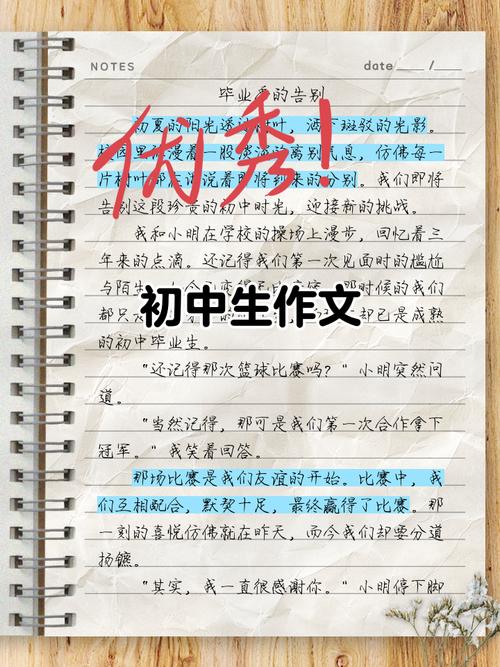 NOTES
date / 
毕业季的告别
优秀!
初夏的阳光透过树叶,洒下斑驳的光影。
校园里弥漫着一股淡淡的离别气息,仿佛每一
片树叶都在诉说着即将到来的分别。我们即将
告别这段珍贵的初中时光,迎接新的挑战。
我和小明在学校的操场上漫步,回忆着三
年来的点滴。还记得我们第一次见面时的尴尬
与陌生,
那时候的我们
都只
却已是成熟
初中生作文
的初中毕业生。
“还记得那次篮球比赛吗?”小明突然问
道。
“当然记得,那可是我们第一次合作拿下
冠军。”我笑着回答。
那场比赛是我们友谊的开始。比赛中,我
们互相配合,默契十足,最终赢得了比赛。那
一刻的喜悦仿佛就在昨天,而今我们却要分道
扬镳。
“其实,我一直很感谢你。”小明停下脚